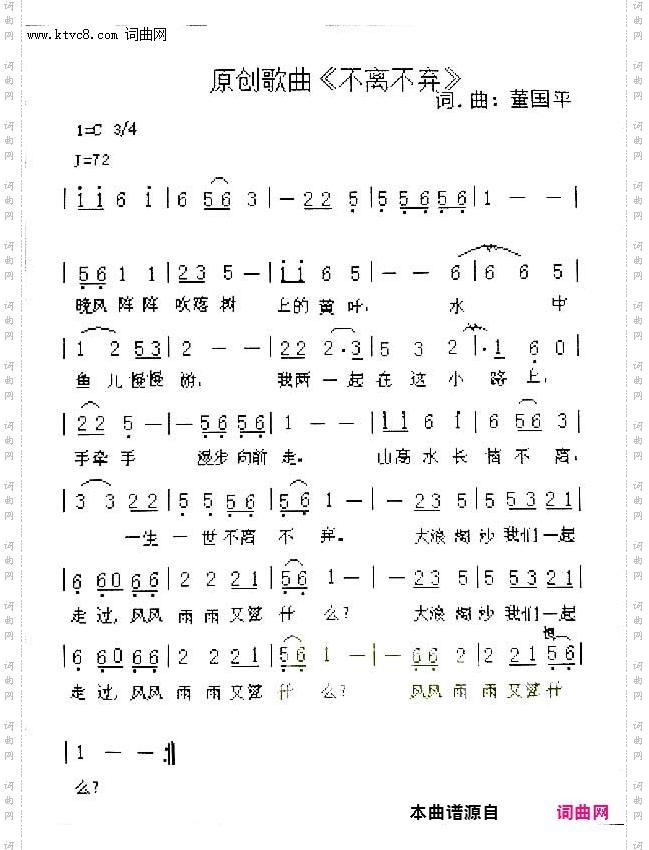 www.ktvc8.com 词曲网
原创歌曲《不离不弃》
词.曲：董国平
1=C 3/4
J=72
| i i 6 i | 6 5 6 3 | — 2 2 5 | 5 5 5 6 | 1 — — |
| 5 6 1 1 | 2 3 5 — | i i 6 5 | — — 6 | 6 6 5 |
晚风 阵 阵 吹落 树 上的 黄 叶， 水 中
| 1 2 5 3 | 2 — — | 2 2 2 · 3 | 5 3 2 | · 1 6 0 |
鱼 儿 慢慢 游， 我两 一 起 在 这 小 路 上，
| 2 2 5 — | — 5 6 5 6 | 1 — — | i i 6 i | 6 5 6 3 |
手牵 手 漫步 向前 走。 山高 水 长 情 不 离，
| 3 3 2 2 | 5 5 5 6 | 5 6 1 — | — 2 3 5 | 5 5 3 2 1 |
一生 一 世 不离 不 弃。 大浪 淘 沙 我们 一起
| 6 6 0 6 6 | 2 2 2 1 | 5 6 1 — | — 2 3 5 | 5 5 3 2 1 |
走 过，风风 雨 雨 又算 什 么？ 大浪 淘 沙 我们 一起
| 6 6 0 6 6 | 2 2 2 1 | 5 6 1 — | — 6 6 2 | 2 2 1 5 6 |
走 过，风风 雨 雨 又算 什 么？ 风风 雨 雨 又算 什
| 1 — — :||
么？
本曲谱源自 词曲网